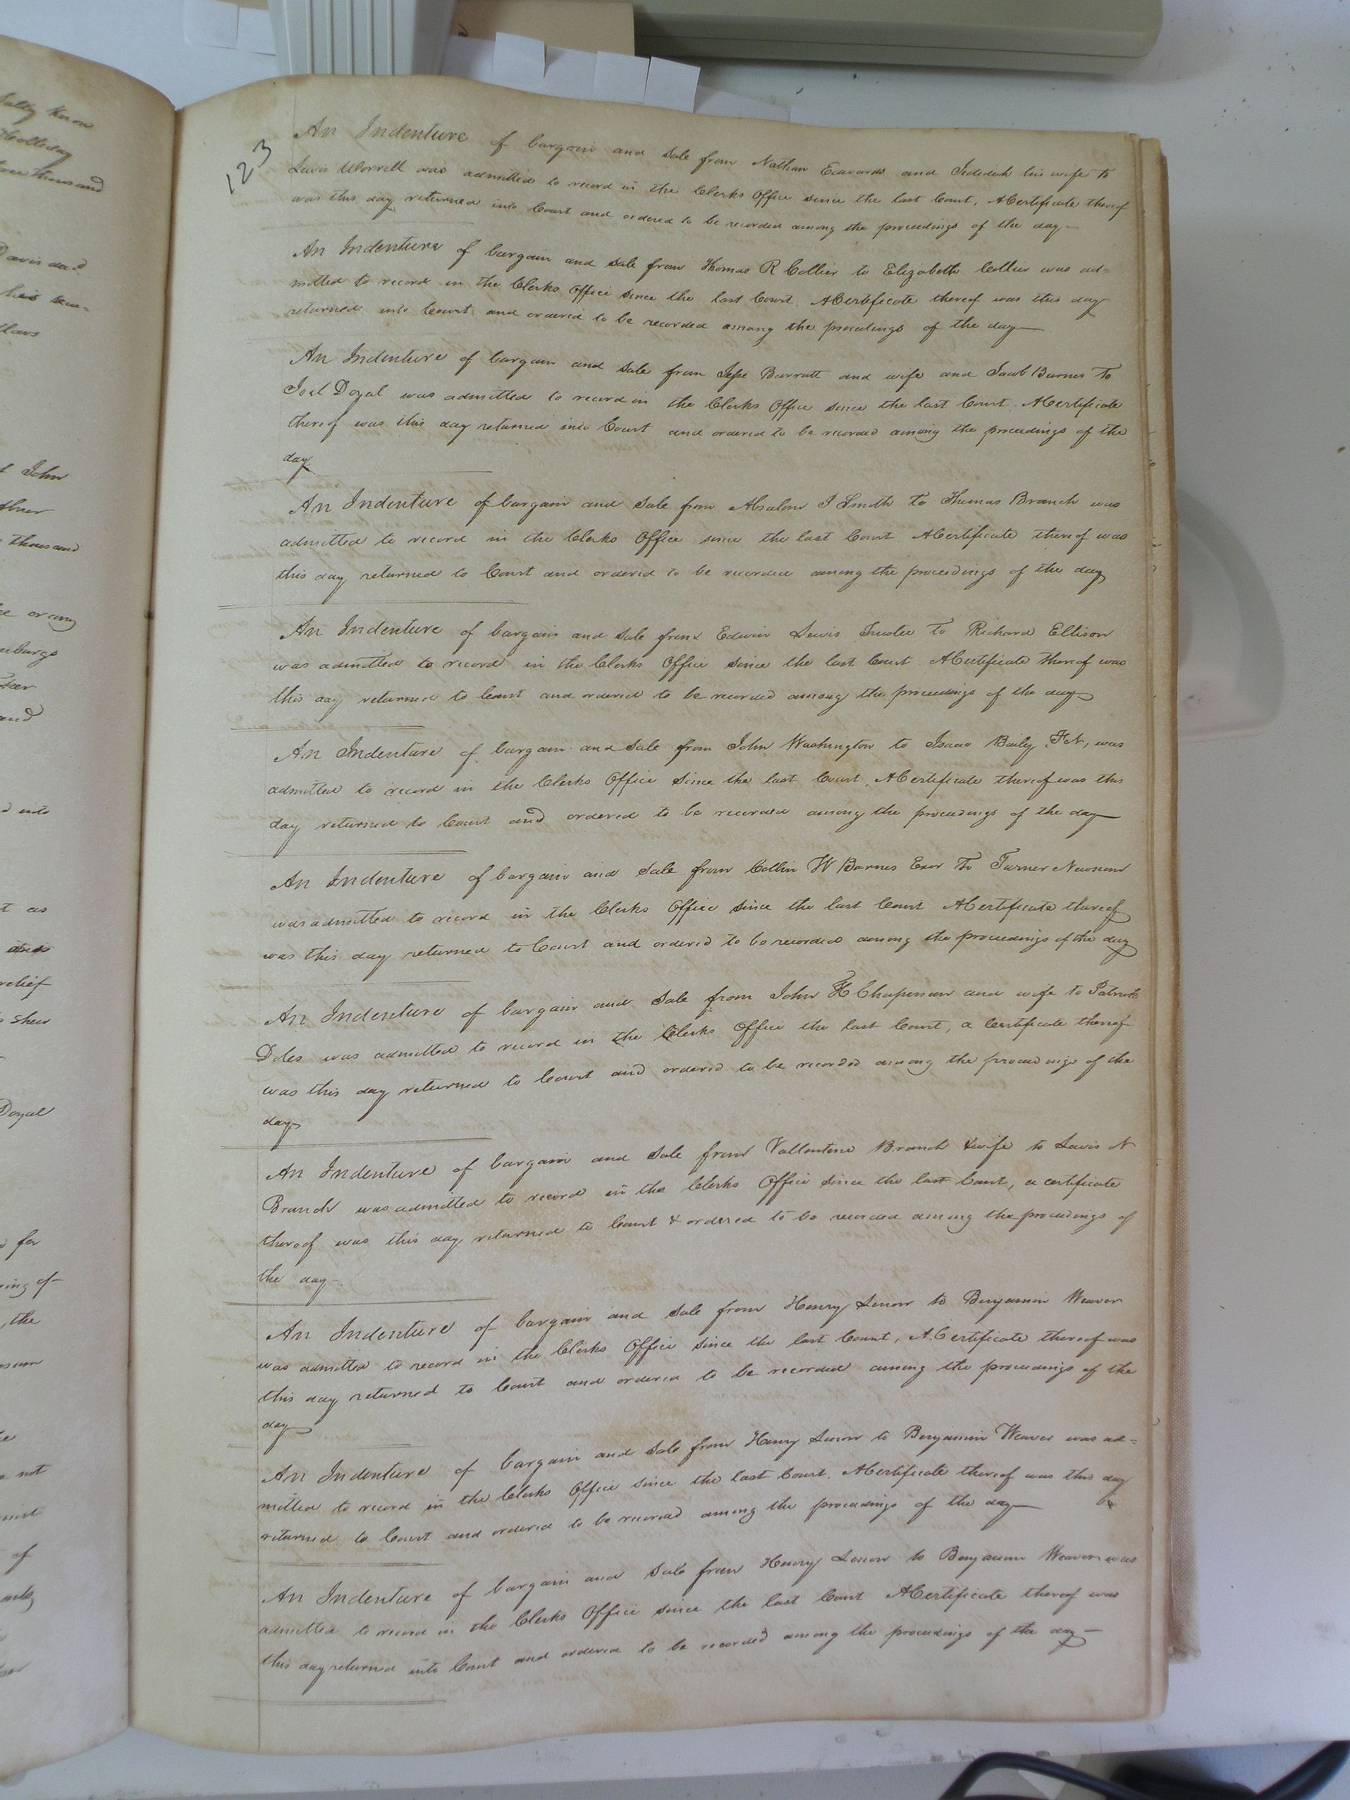 123
An Indenture of bargain and Sale from Nathan Edwards and Jedidah his wife to
Lewis Worrell was admitted to record in the Clerks Office since the last Court. A Certificate thereof
was this day returned into Court and ordered to be recorded among the proceedings of the day
An Indenture of bargain and Sale from Thomas R Collier to Elizabeth Collier was ad=
mitted to record in the Clerks Office since the last Court. A Certificate thereof was this day
returned into Court and ordered to be recorded among the proceedings of the day
An Indenture of bargain and Sale from Jesse Barratt and wife and Jacob Barnes To
Joel Doyal was admitted to record in the Clerks Office since the last Court. A Certificate
thereof was this day returned into Court and ordered to be recorded among the proceedings of the
day
An Indenture of bargain and Sale from Absalom J Smith to Thomas Branch was
admitted to record in the Clerks Office since the last Court A Certificate thereof was
this day returned to Court and ordered to be recorded among the proceedings of the day
An Indenture of bargain and Sale from Edwin Lewis Trustee To Richard Ellison
was admitted to record in the Clerks Office since the last Court A Certificate thereof was
this day returned to Court and ordered to be recorded among the proceedings of the day
An Indenture of bargain and Sale from John Washington to Isaac Baily F.N, was
admitted to record in the Clerks Office Since the last Court. A Certificate thereof was this
day returned to Court and ordered to be recorded among the proceedings of the day
An Indenture of bargain and Sale from Collin W Barnes Exor To Turner Newsom
was admitted to record in the Clerks Office since the last Court A Certificate thereof
was this day returned to Court and ordered to be recorded among the proceedings of the day
An Indenture of bargain and Sale from John Chapman and wife to Patrick
Doles was admitted to record in the Clerks Office the last Court, a Certificate thereof
was this day returned to Court and ordered to be recorded among the proceedings of the
day
An Indenture of bargain and Sale from Vallentine Branch & wife to Lewis N
Branch was admitted to record in the Clerks Office since the last Court, a certificate
thereof was this day returned to Court & ordered to be recorded among the proceedings of
the day
An Indenture of bargain and Sale from Henry Lenow to Benjamin Weaver
was admitted to record in the Clerks Office since the last Court, A Certificate thereof was
this day returned to Court and ordered to be recorded among the proceedings of the
day
An Indenture of bargain and Sale from Henry Lenow to Benjamin Weaver was ad=
mitted to record in the Clerks Office since the last Court. A Certificate thereof was this day
returned to Court and ordered to be recorded among the proceedings of the day
An Indenture of bargain and Sale from Henry Lenow to Benjamin Weaver was
admitted to record in the Clerks Office since the last Court A Certificate thereof was
this day returned into Court and ordered to be recorded among the proceedings of the day